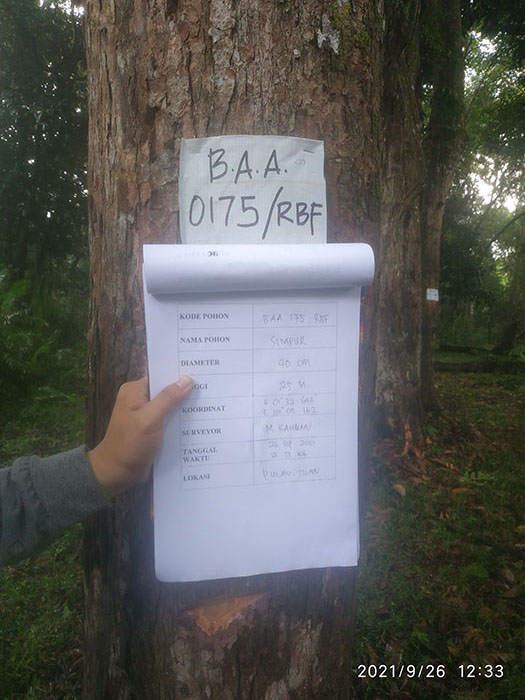 B.A.A.
0175/RBF
KODE POHON BAA 175 RBF
NAMA POHON SIMPUR
DIAMETER 40 CM
GGI 25 M
KOORDINAT
SURVEYOR M RAHMAN
TANGGAL
WAKTU
LOKASI PULAU
2021/9/26 12:33